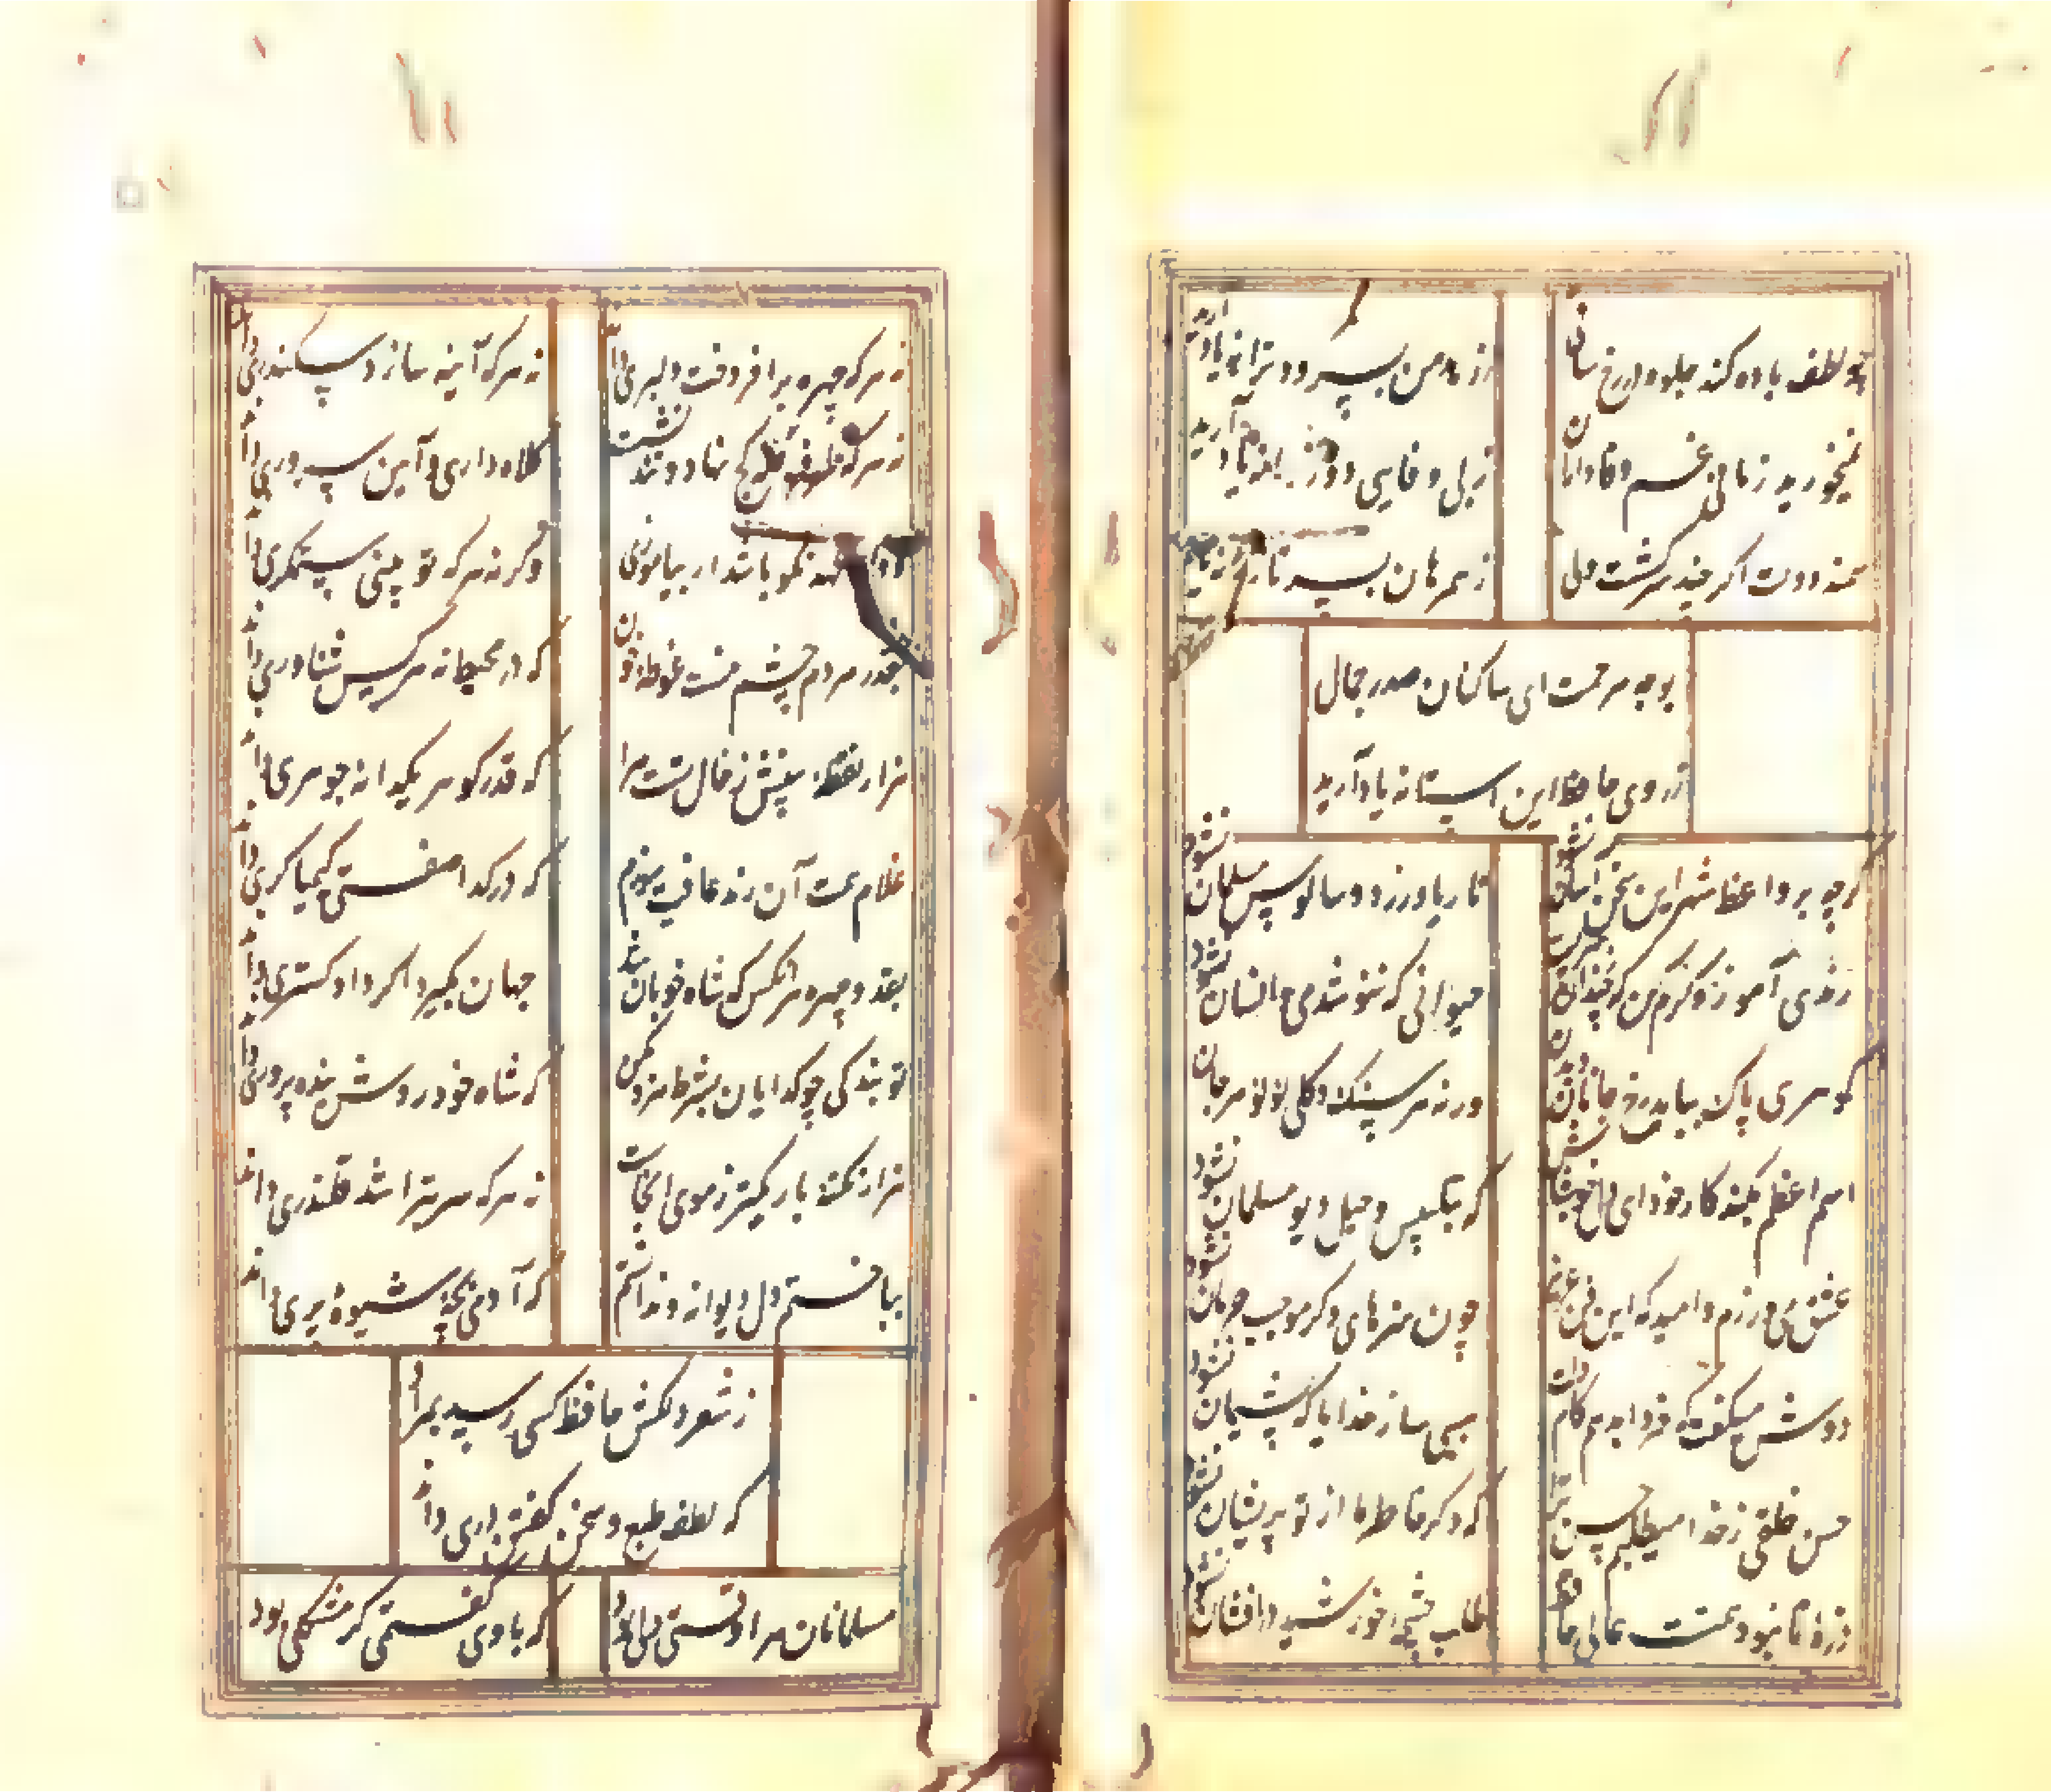 چو لطف باده کند جلوه در رخ ساقی
ز عاشقان بسرود و ترانه یاد آرید
نمیخورید زمانی غم وفاداران
ز بی وفایی دور زمانه یاد آرید
سمند دولت اگر چند سرکشست ولی
ز همرهان بسر تازیانه یاد آرید
بوجه مرحمت ای ساکنان صدر جلال
ز روی حافظ و این آستانه یاد آرید
گرچه بر واعظ شهر این سخن آسان نشود
تا ریا ورزد و سالوس مسلمان نشود
رندی آموز و کرم کن که نه چندان هنرست
حیوانی که ننوشد می و انسان نشود
گوهری پاک بباید که شود قابل فیض
ورنه هر سنگ و گلی لؤلؤ و مرجان نشود
اسم اعظم بکند کار خود ای دل خوش باش
که بتلبیس و حیل دیو مسلمان نشود
عشق می ورزم و امید که این فن شریف
چون هنرهای دگر موجب حرمان نشود
دوش میگفت که فردا بدهم کام دلت
سببی ساز خدایا که پشیمان نشود
حسن خلقی ز خدا میطلبم حسن ترا
که دگر خاطر ما از تو پریشان نشود
ذره را تا نبود همت عالی حافظ
طالب چشمه خورشید درافشان نشود
نه هر که چهره برافروخت دلبری داند
نه هر که آینه سازد سکندری داند
نه هر که طرف کله کج نهاد و تند نشست
کلاه داری و آیین سروری داند
وفا و عهد نکو باشد ار بیاموزی
وگرنه هر که تو بینی ستمگری داند
مدار مردم چشم منست غوطه خون
که در محیط نه هر کس شناوری داند
هزار نقطه بینش ز خال تست مرا
که قدر گوهر یکدانه جوهری داند
غلام همت آن رند عافیت سوزم
که در گدا صفتی کیمیاگری داند
بقد و چهره هر آنکس که شاه خوبان شد
جهان بگیرد اگر دادگستری داند
تو بندگی چو گدایان بشرط مزد مکن
که شاه خود روش بنده پروری داند
هزار نکته باریکتر ز موی اینجاست
نه هر که سر بتراشد قلندری داند
بباختم دل دیوانه و ندانستم
که آدمی بچه شیوه پری داند
ز شعر دلکش حافظ کسی رسد بمراد
که لطف طبع و سخن گفتن دری داند
مسلمانان مرا وقتی دلی بود
که با وی گفتمی گر مشکلی بود